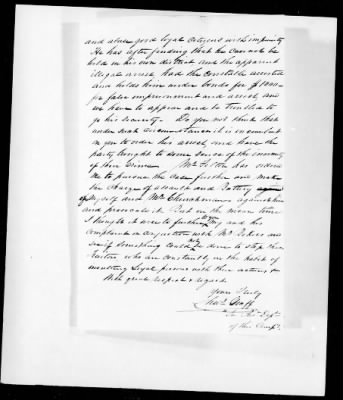 and abuse good loyal citizens with impunity
He has after finding that he can not be
held in his own district and the apparent
illegal arrest had the Constable arrested
and holds him under bonds for $1000
for false imprisonment and arrest and
we have to appear and be troubled to
go his security. Do you not think that
under such circumstances it is
in you to order his arrest and have the
party brought to some sense of the
of their crimes. Mr has ordered
me to pursue the case further and make
the charge of assault and Battery
of myself and Mr against him
and prosecute it. But in the mean time
I thought it were to further my and his
complaint in conjunction with Mr and
see if something could be done to stop these
traitors who are constantly in the habit of
insulting loyal persons with their actions &
With great respect & regard
Yours Truly
Chas
of this